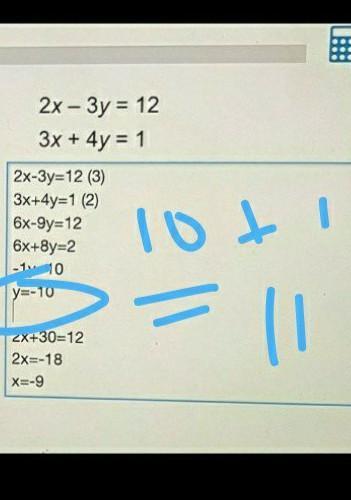 2x – 3y = 12
3x + 4y = 1
2x-3y=12 (3)
3x+4y=1 (2)
6x-9y=12
6x+8y=2
-1y=-10
y=-10
2x+30=12
2x=-18
x=-9
10 + 1
= 11